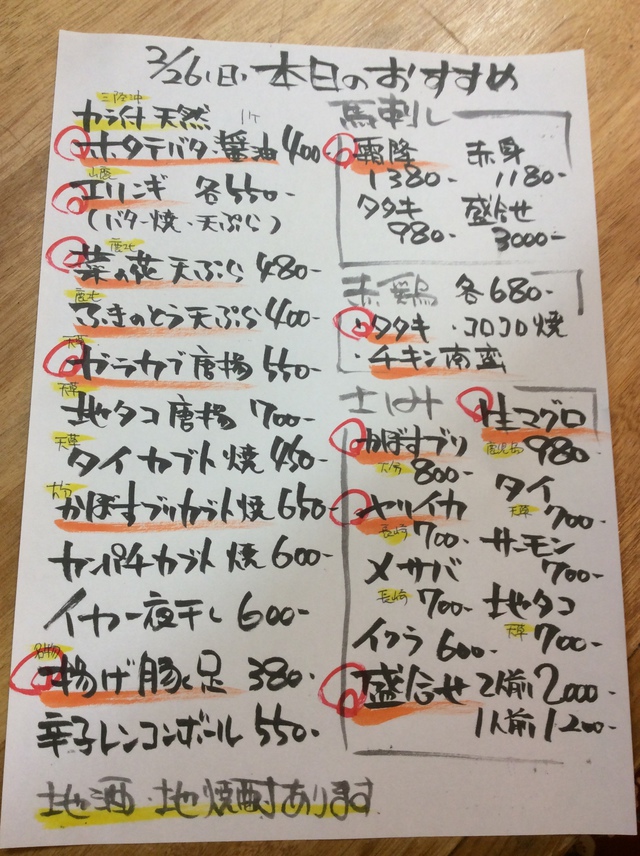 2/26(日) 本日のおすすめ
三陸沖
カラ付天然 1ケ
ホタテバタ醤油 400
山鹿
エリンギ 各550-
(バター焼・天ぷら)
鹿北
菜の花天ぷら 480-
鹿北
ふきのとう天ぷら 400-
天草
ガラカブ唐揚 550-
天草
地タコ唐揚 700-
天草
タイカブト焼 450-
大分
かぼすブリカブト焼 650-
カンパチカブト焼 600-
イカ一夜干し 600-
名物
揚げ豚足 380-
辛子レンコンボール 550-
地酒・地焼酎あります
馬刺し
霜降 1380-
赤身 1180-
タタキ 980-
盛合せ 3000-
赤鶏 各680-
・タタキ ・コロコロ焼
・チキン南蛮
さしみ
生マグロ
鹿児島 980
かぼすブリ
大分 800-
タイ
天草 700-
ヤリイカ
長崎 700-
サーモン
700-
メサバ
長崎 700-
地タコ
天草 700-
イクラ 600-
盛合せ 2人前 2000-
1人前 1200-